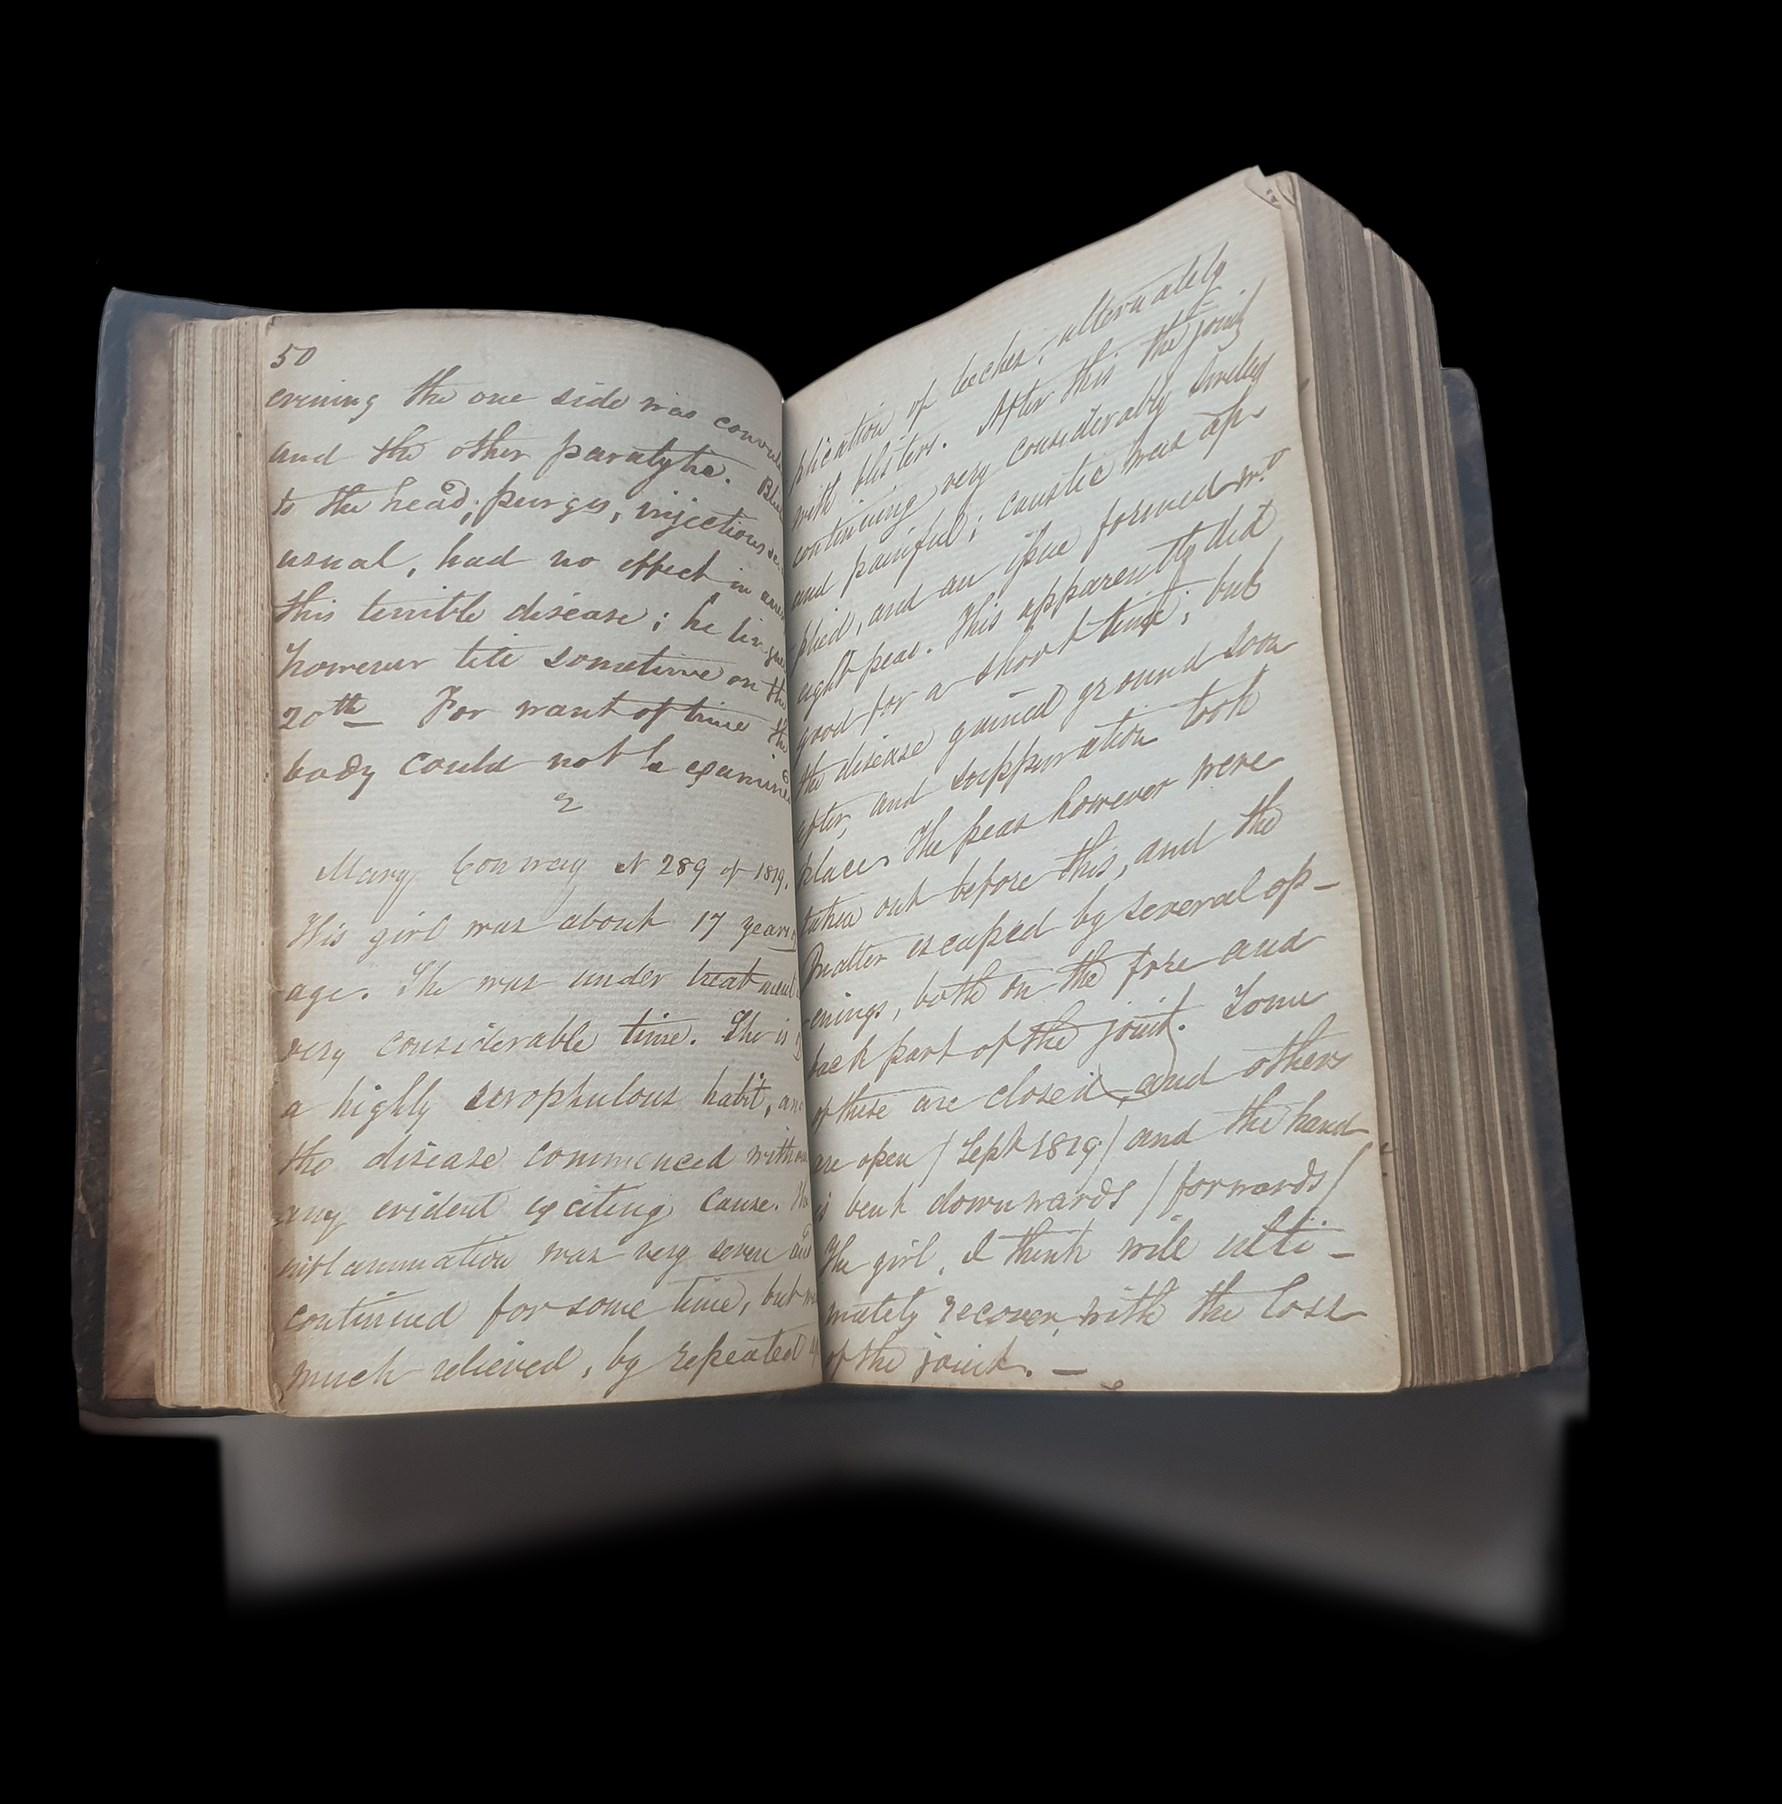 50
evening the one side was convuls
and the other paralytic.
to the head; purges, injections &c.
usual, had no effect in
this terrible disease; he
however till sometime on the
20th For want of time the
body could not be examined
2
Mary Conway N 289 of 1819.
This girl was about 17 years
age. She was under treatment
very considerable time. She is
a highly scrophulous habit, and
the disease commenced without
any evident exciting cause. The
inflammation was very severe and
continued for some time, but
much relieved, by repeated
plication of leeches, alternately
with blisters. After this the joint
continuing very considerably swelled
and painful; caustic was ap-
plied, and an issue formed wt.
eight peas. This apparently did
good for a short time; but
the disease gained ground soon
after, and suppuration took
place. The peas however were
taken out before this, and the
matter escaped by several op-
enings, both on the fore and
back part of the joint. Some
of these are closed, and others
are open / Sept 1819 / and the hand
is bent downwards / forwards /
The girl, I think will ulti-
mately recover, with the loss
of the joint. —